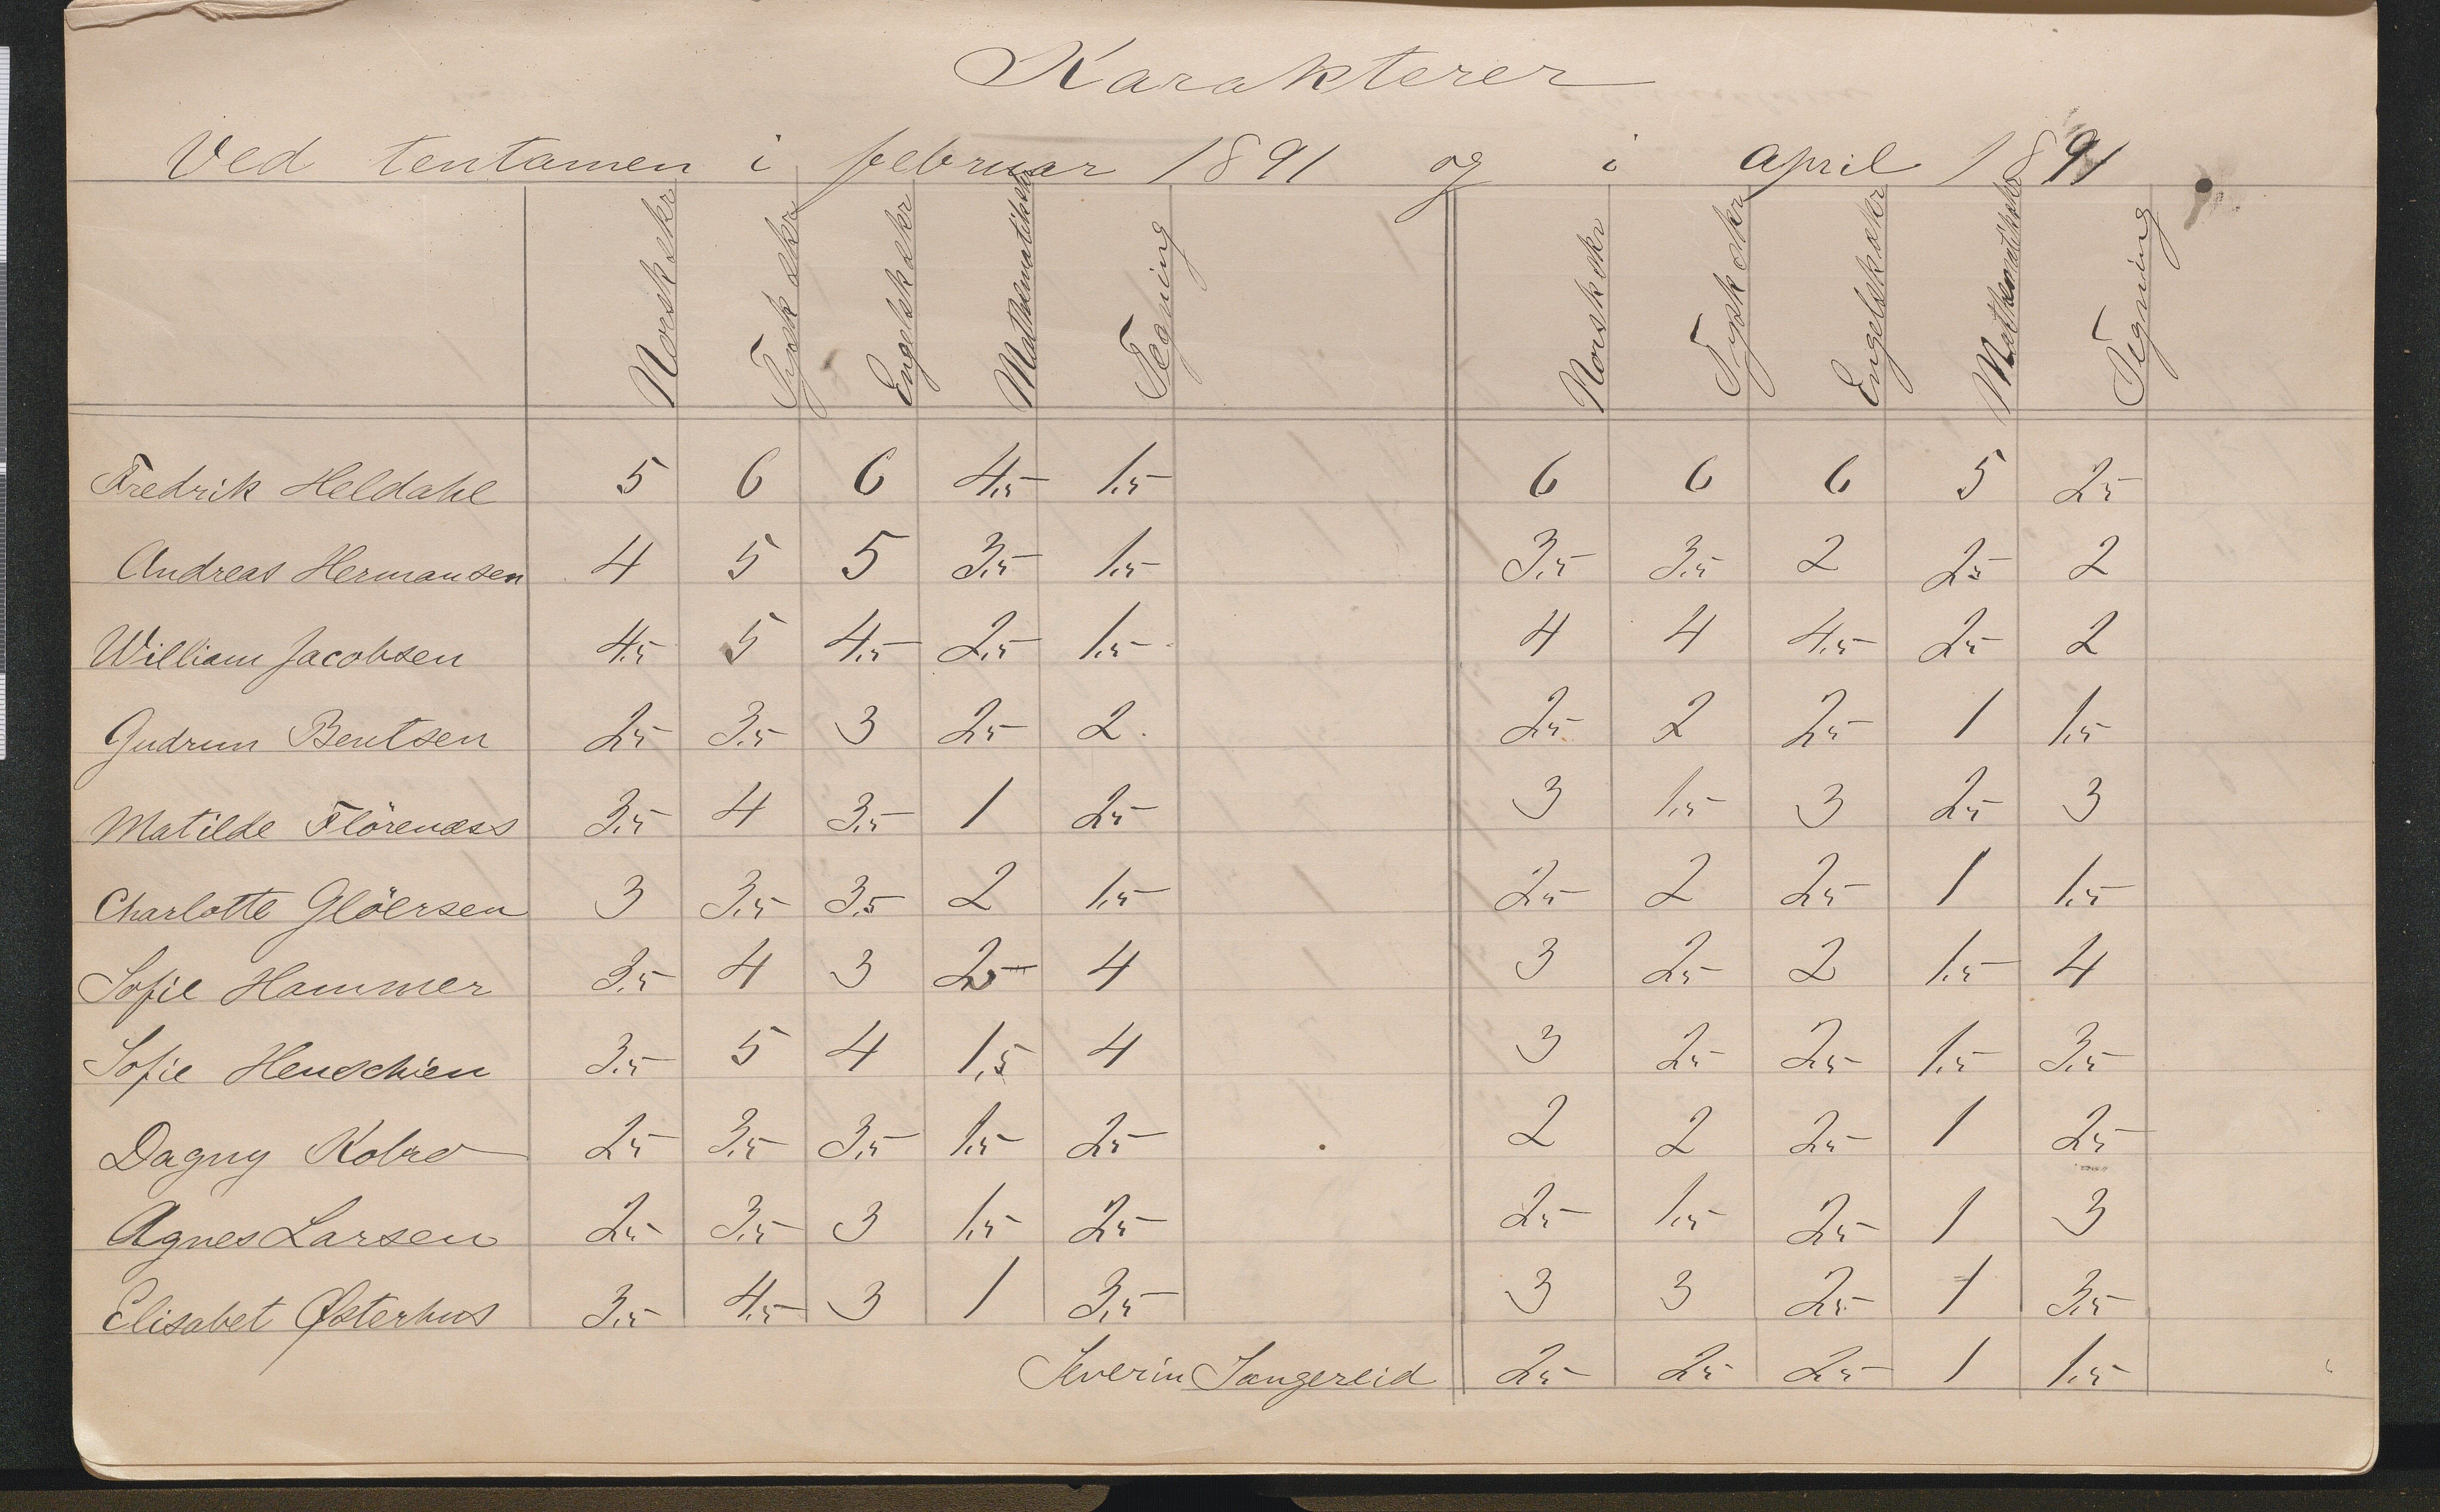 Karakterer
Ved tentamen i februar 1891 og i april 1891
Norsk skr Tysk skr Engelsk skr Mathematik skr Tegning Norsk skr Tysk skr Engelsk skr Mathematik skr Tegning
Fredrik Heldahl 5 6 6 4,5 1,5 6 6 6 5 2,5
Andreas Hermansen 4 5 5 3,5 1,5 3,5 3,5 2 2,5 2
William Jacobsen 4,5 5 4,5 2,5 1,5 4 4 4,5 2,5 2
Gudrun Bentsen 2,5 3,5 3 2,5 2 2,5 2 2,5 1 1,5
Matilde Flörenæss 3,5 4 3,5 1 2,5 3 1,5 3 2,5 3
Charlotte Glöersen 3 3,5 3,5 2 1,5 2,5 2 2,5 1 1,5
Sofie Hammer 3,5 4 3 2,5 4 3 2,5 2 1,5 4
Sofie Henschien 3,5 5 4 1,5 4 3 2,5 2,5 1,5 3,5
Dagny Kobro 2,5 3,5 3,5 1,5 2,5 2 2 2,5 1 2,5
Agnes Larsen 2,5 3,5 3 1,5 2,5 2,5 1,5 2,5 1 3
Elisabet Østerhus 3,5 4,5 3 1 3,5 3 3 2,5 1 3,5
Severin Sangereid 2,5 2,5 2,5 1 1,5